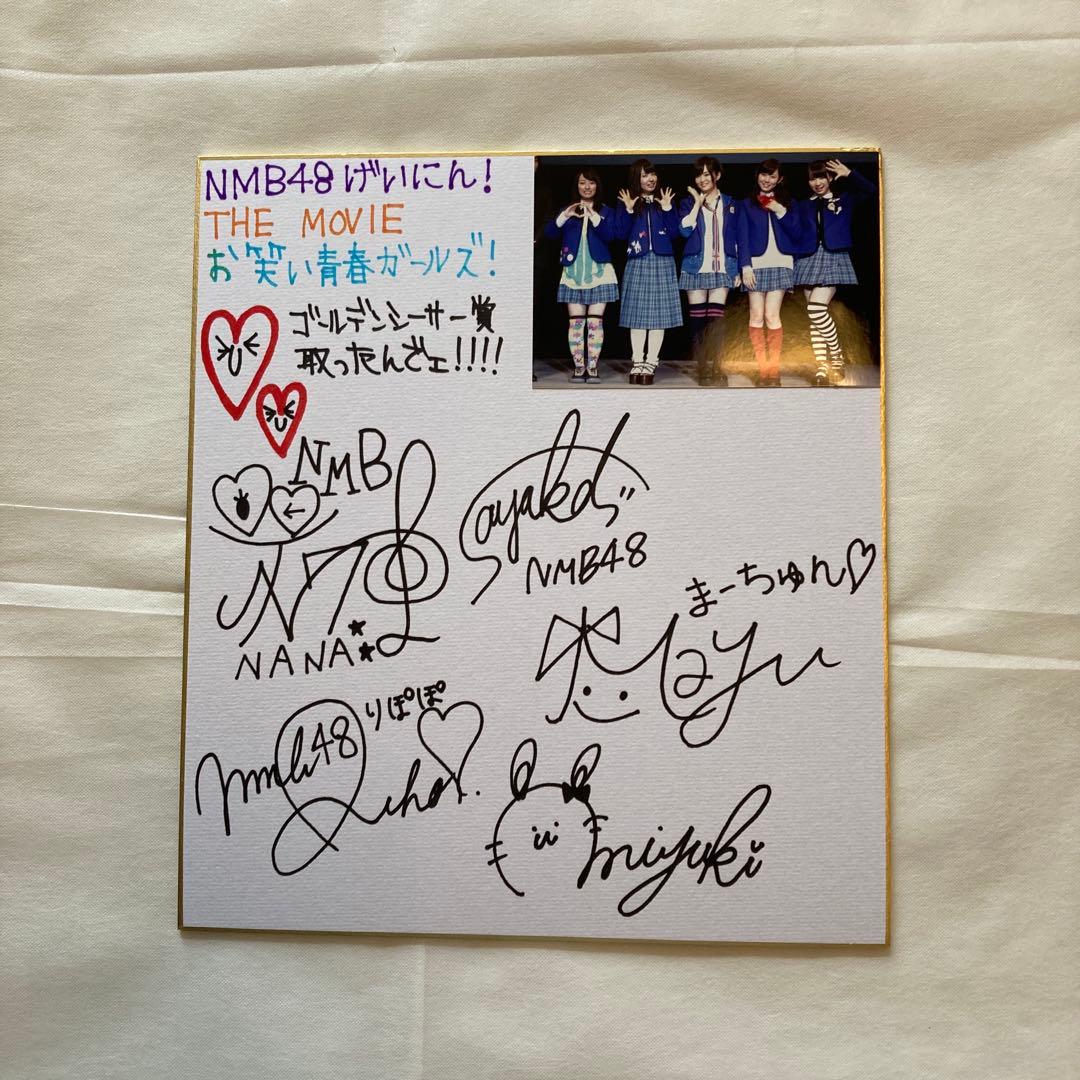 NMB48げいにん!
THE MOVIE
お笑い青春ガールズ!
ゴールデンシーサー賞
取ったんでェ!!!!
NMB
NANA
Sayaka
NMB48
まーちゅん♡
Mayu
nmb48
りぽぽ
Riho
miyuki